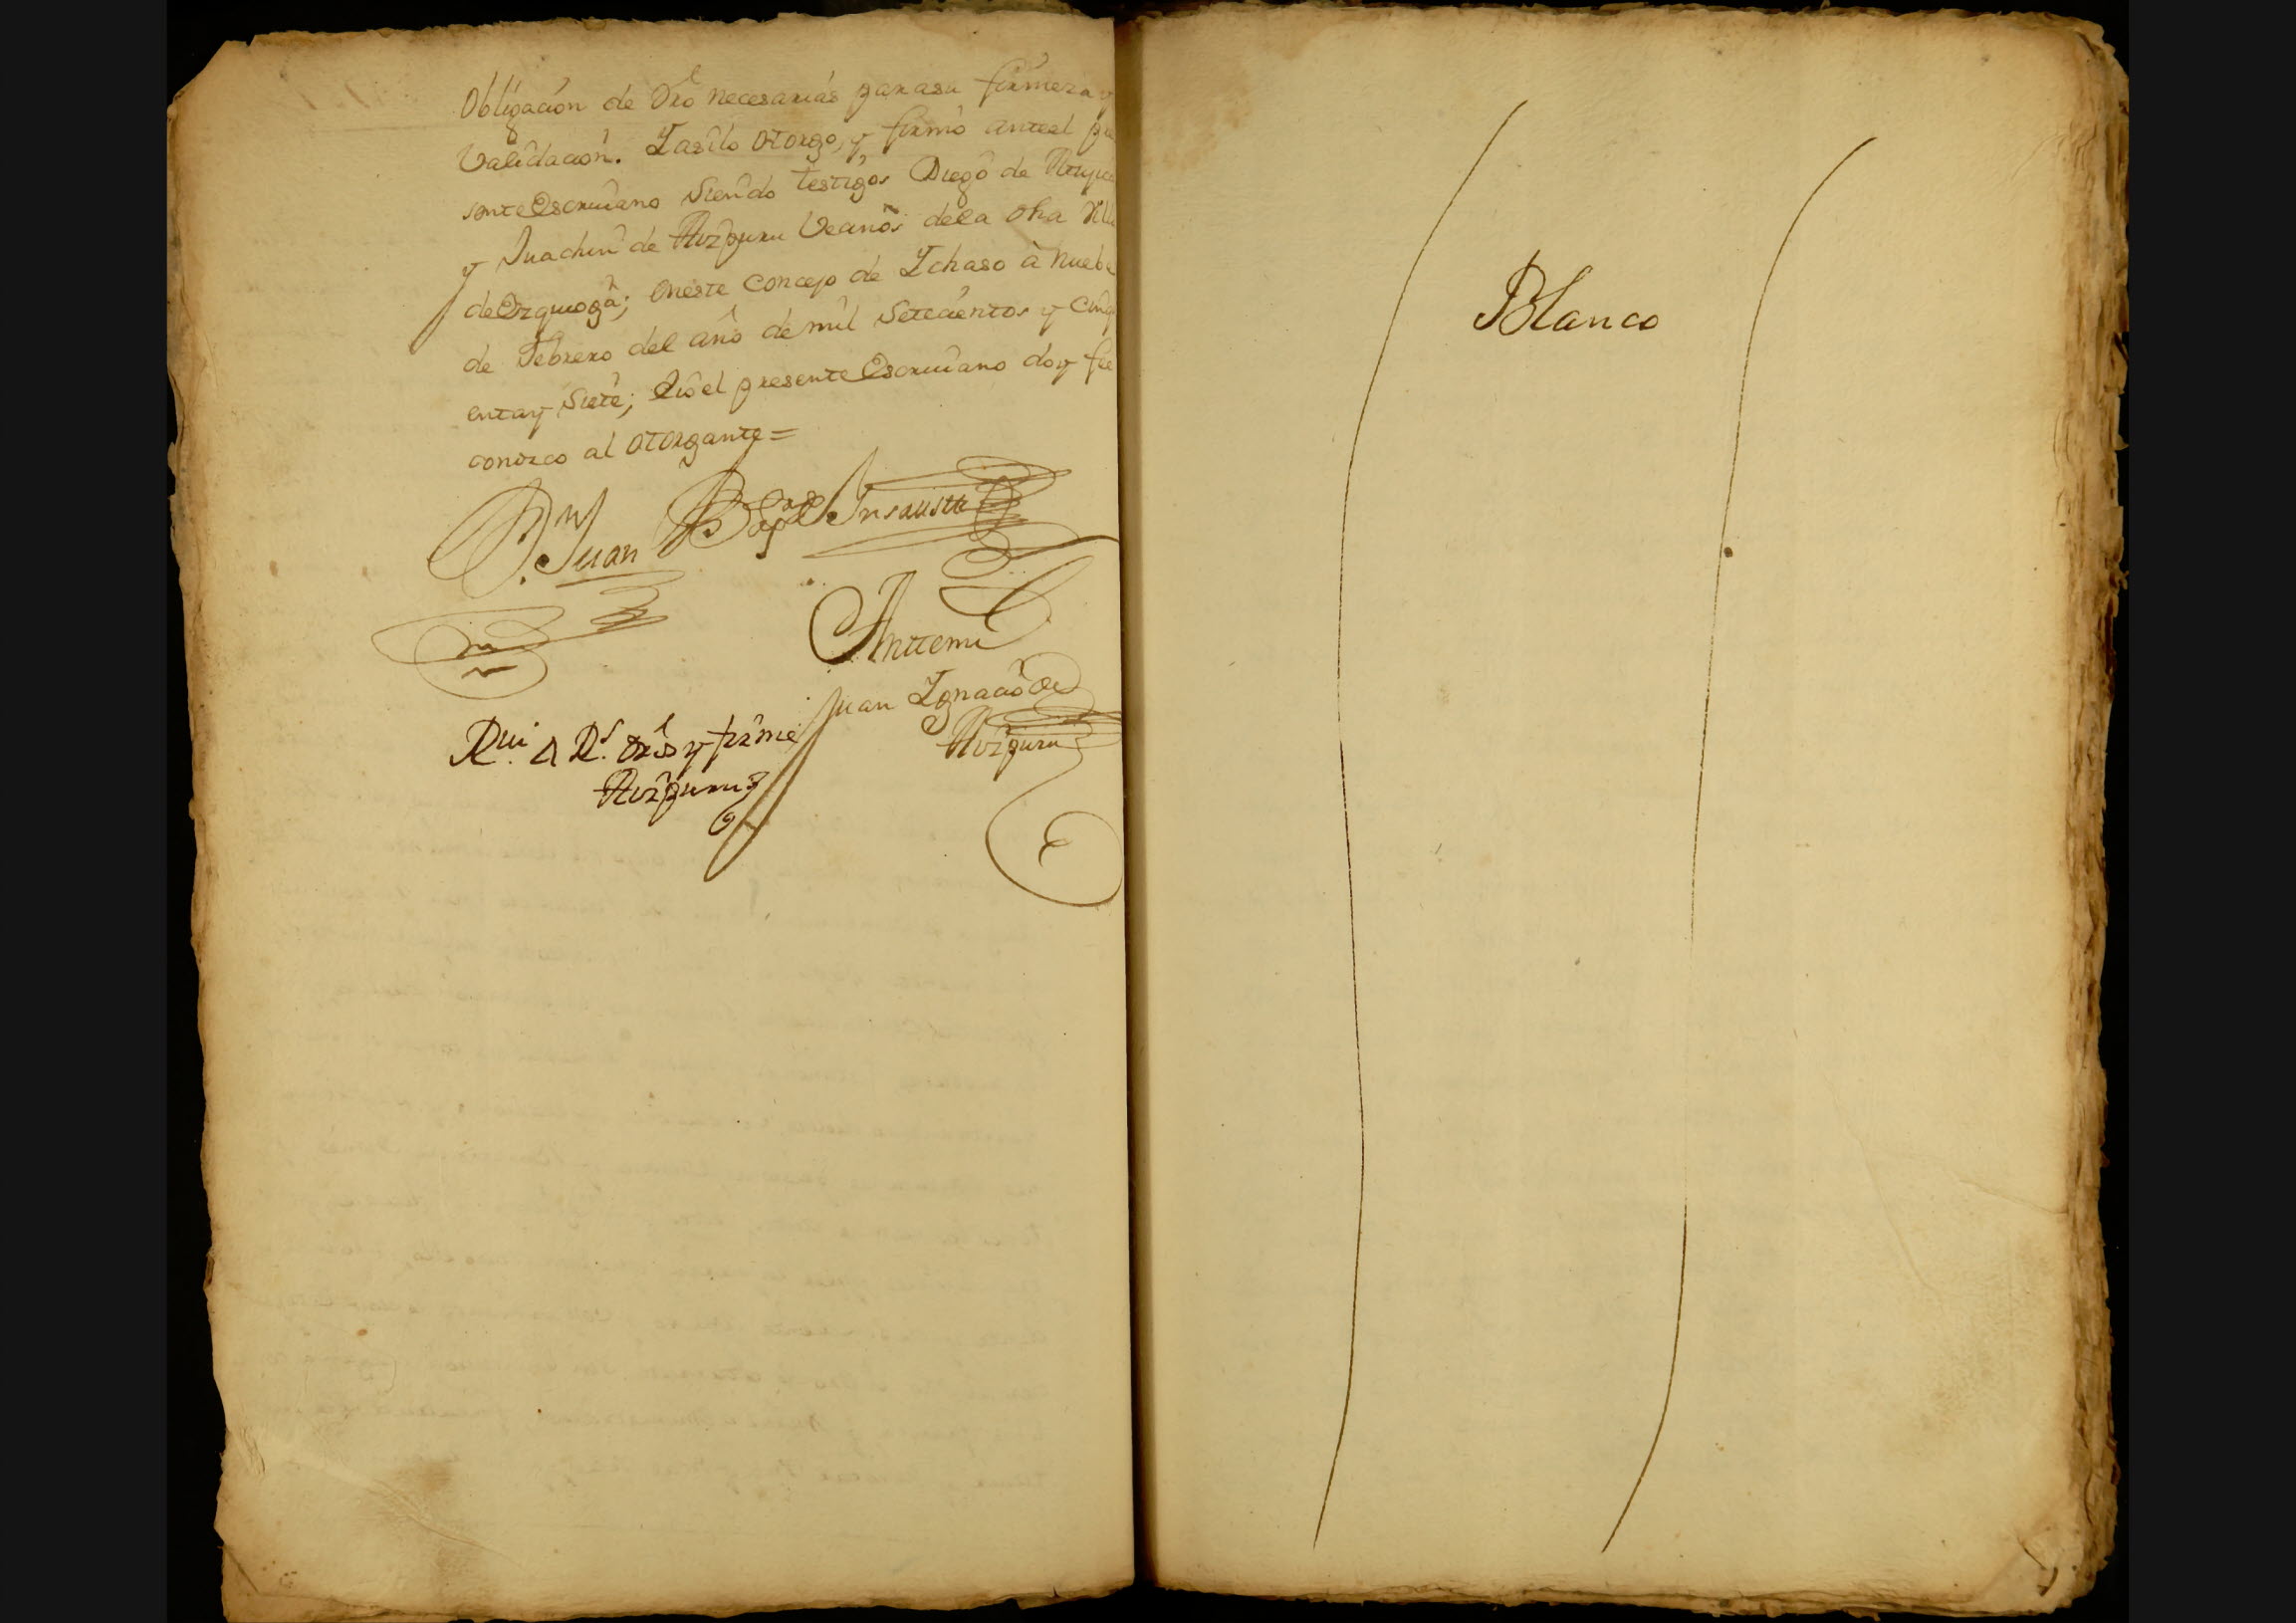 Obligacion de Dro necesarias parasu firmeza y
Validacion. Yasilo otorgo, y firmo anteel pre
sente Escriuano siendo testigos Diego de
y Juachin de Aizpuru Vecinos dela dha Villa
de Ezquioga; eneste Concejo de Ychaso à nuebe
de Febrero del año de mil setecientos y Cinqu
entay siete; Eio el presente Escriuano doy fee
conozco al otorgante =
Dn. Juan Bapta. Insausti
Anttemi
Juan Ygnacio de
Aizpuru
y firme
Aizpuru
Blanco